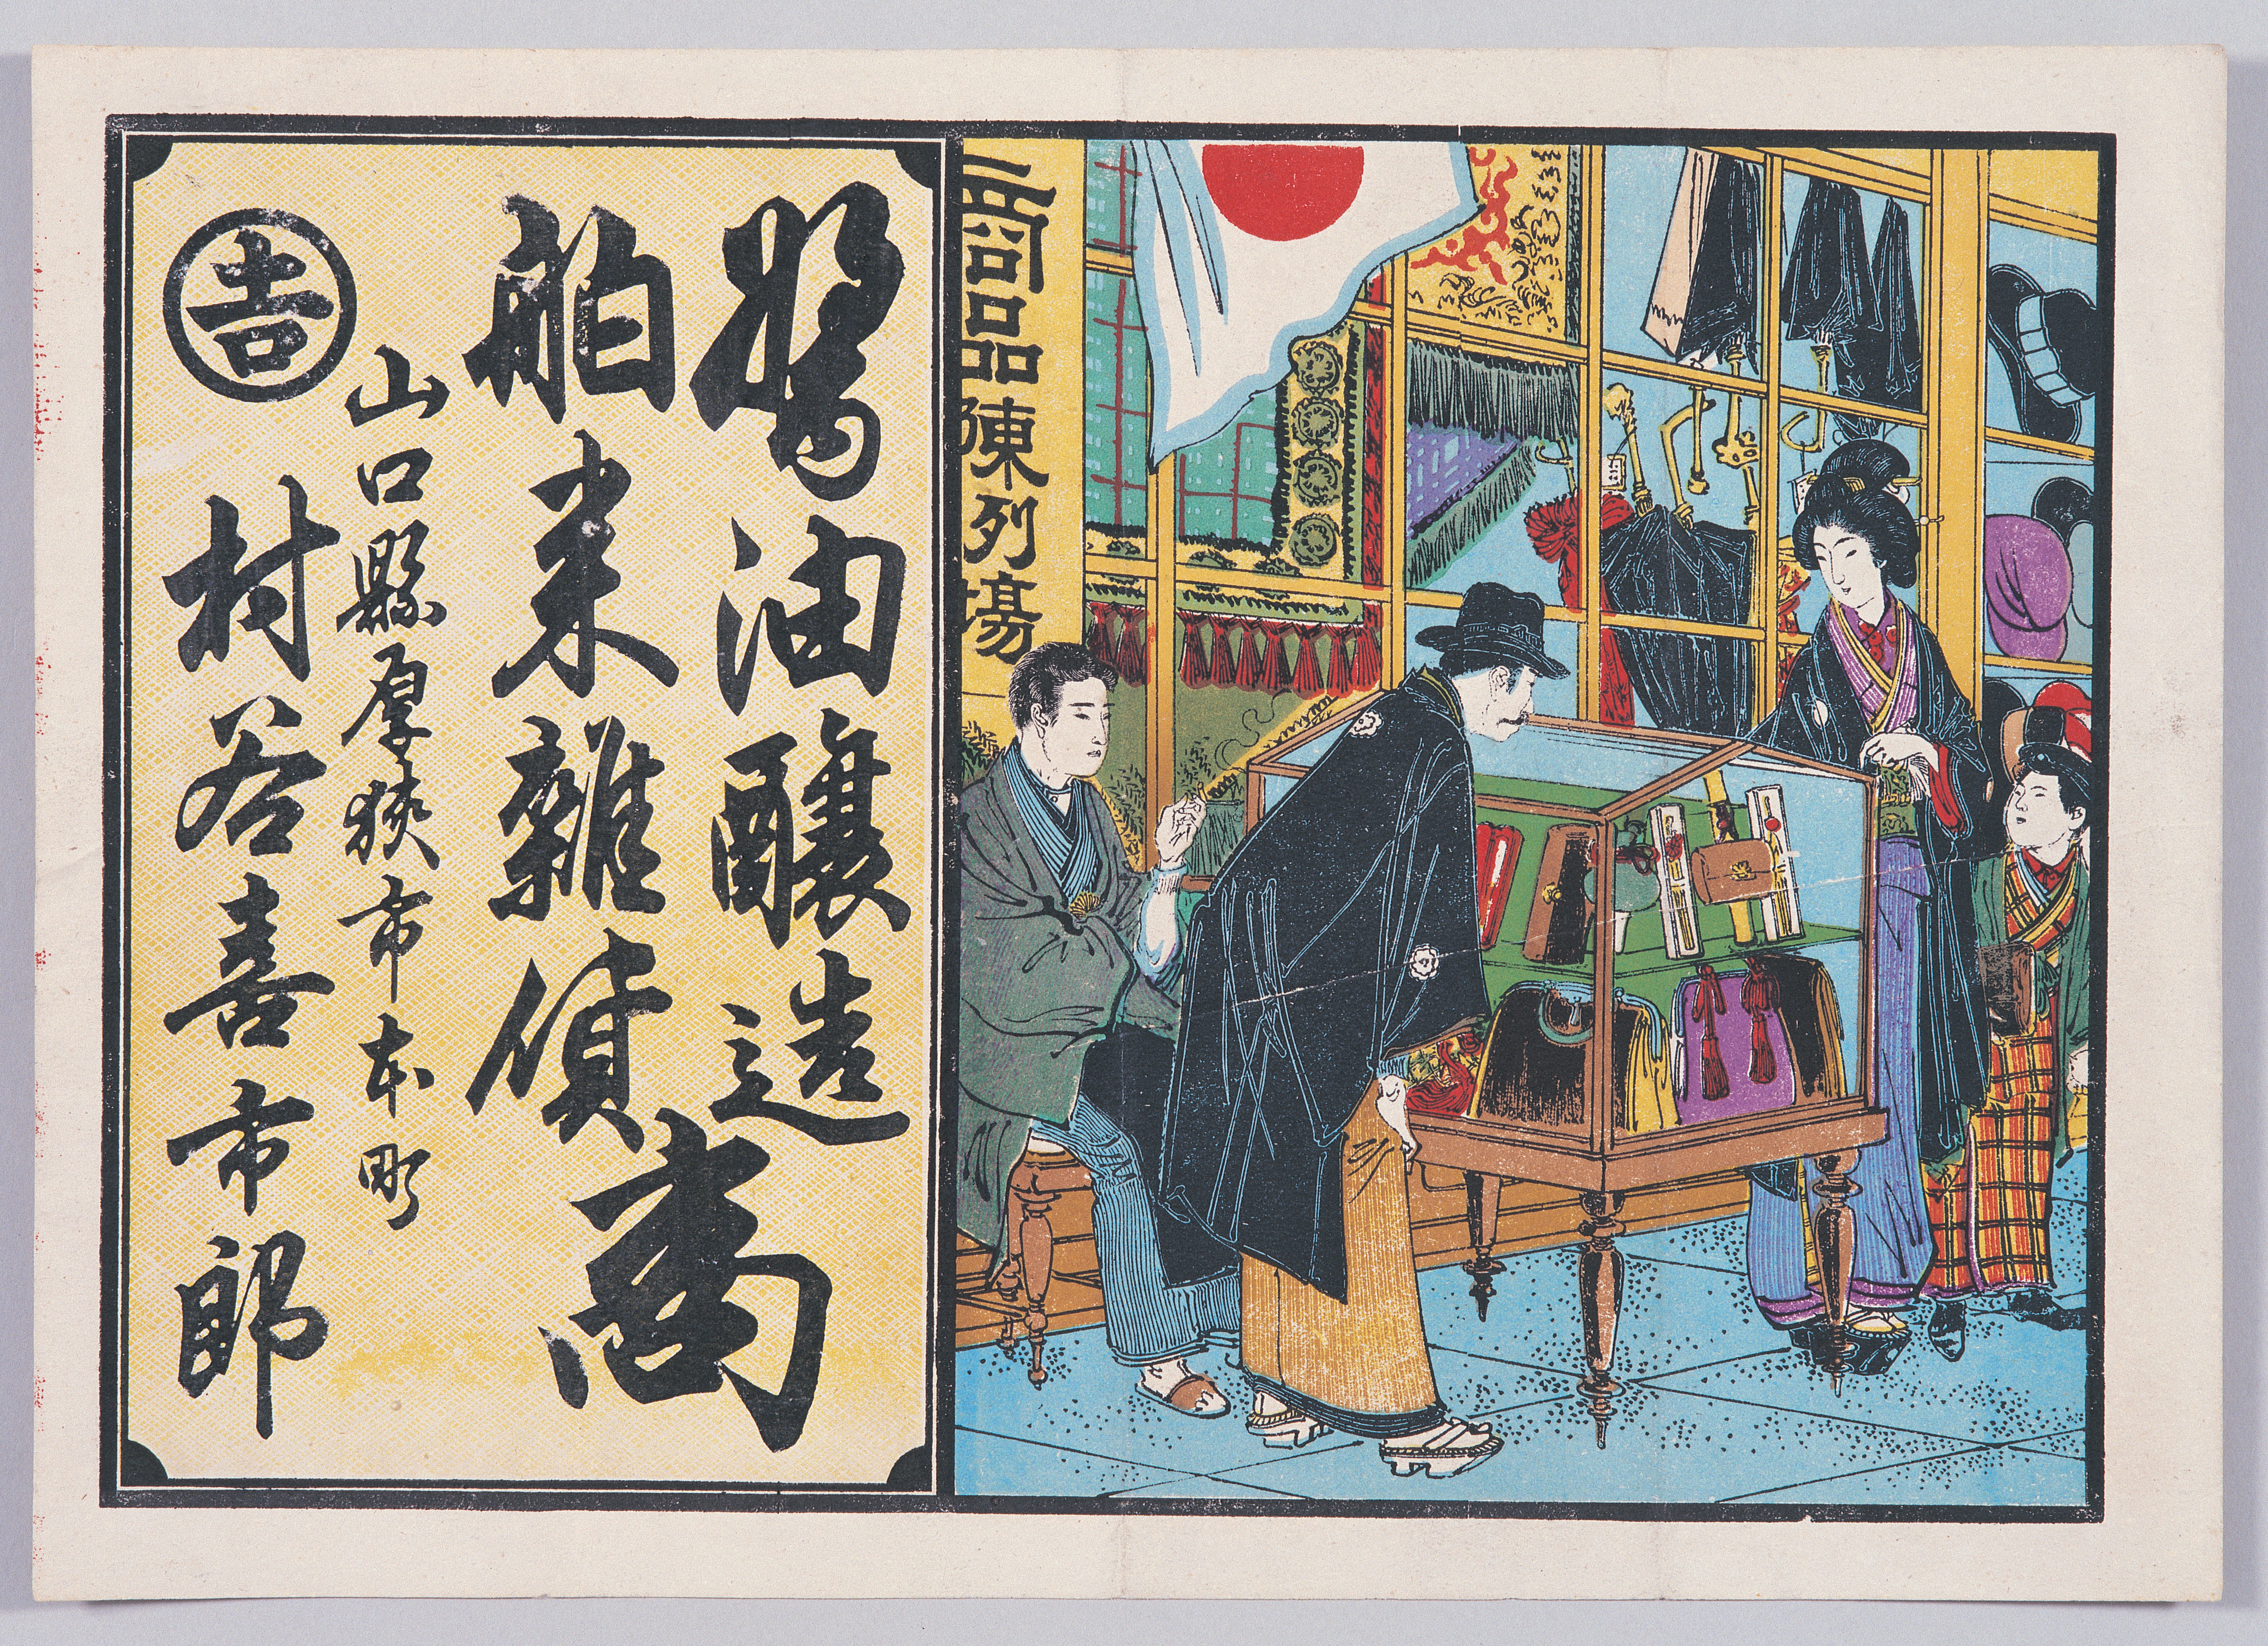 商品陳列場
醤油醸造
舶来雑貨
商
山口縣厚狭市本町
吉
村谷喜市郎